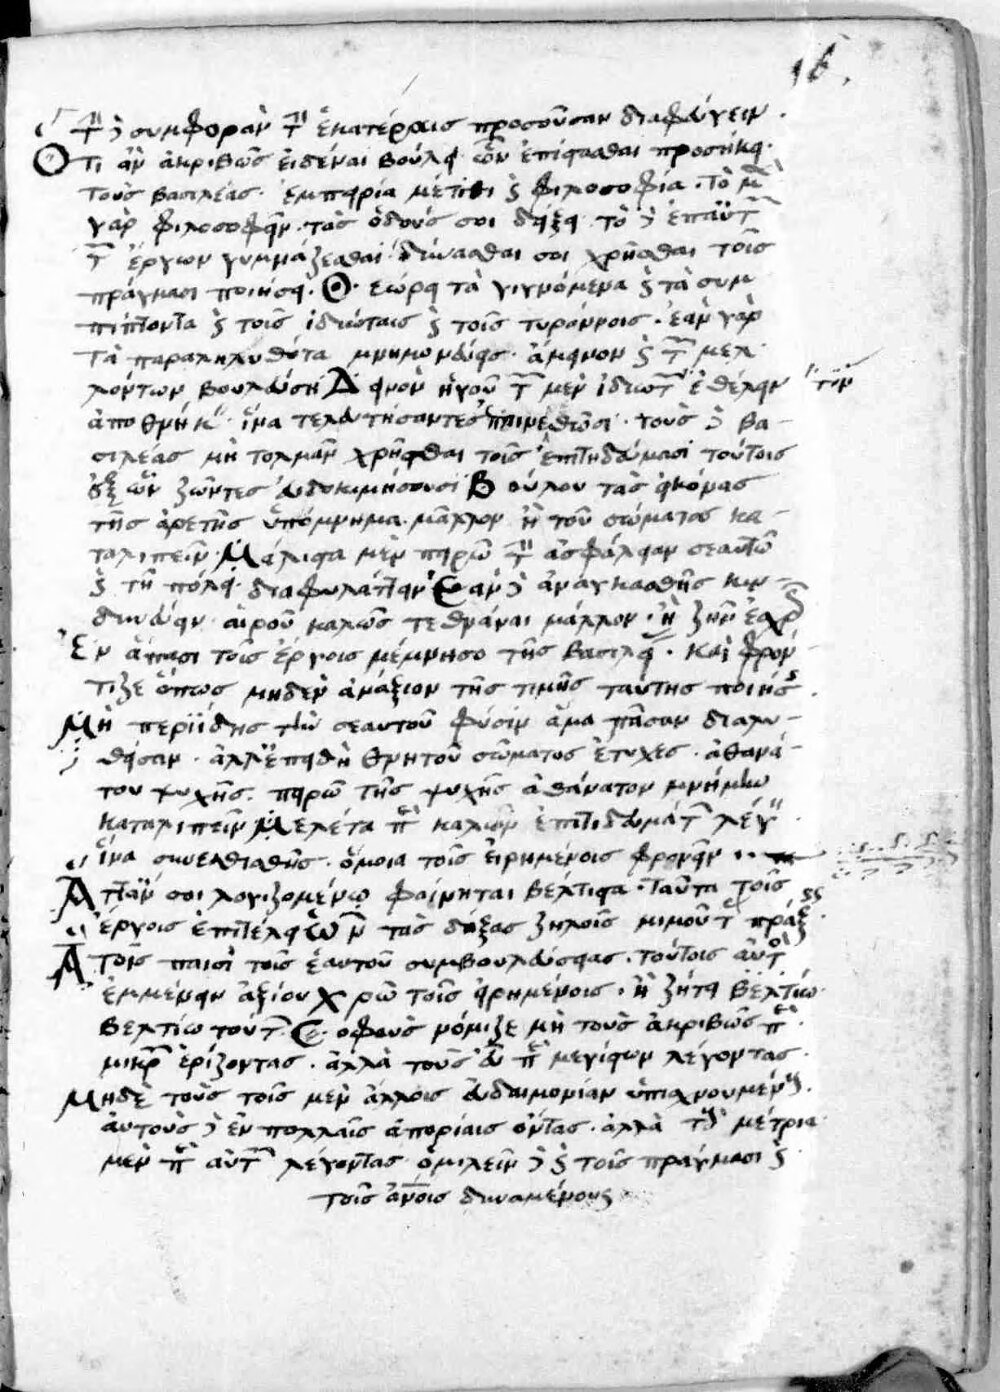 16.
τὴν δὲ συμφορὰν τὴν ἑκατέραις προσοῦσαν διαφεύγειν.
Ὅτι ἂν ἀκριβῶς εἰδέναι βούλῃ ὧν ἐπίστασθαι προσήκει
τοὺς βασιλέας. ἐμπειρία μέτιθι καὶ φιλοσοφία. τὸ μὲν
γὰρ φιλοσοφεῖν. τὰς ὁδούς σοι δείξει. τὸ δὲ ἐπ' αὐτῶν
τῶν ἔργων γυμνάζεσθαι δύνασθαί σοι χρῆσθαι τοῖς
πράγμασι ποιήσει. Θεώρει τὰ γιγνόμενα καὶ τὰ συμ
πίπτοντα καὶ τοῖς ἰδιώταις καὶ τοῖς τυράννοις. ἐὰν γὰρ
τὰ παρεληλυθότα μνημονεύῃς. ἄμεινον καὶ τῶν μελ
λόντων βουλεύσῃ Δεινὸν ἡγοῦ τῶν μὲν ἰδιωτῶν ἐθέλειν
τὸν
ἀποθνήσκειν ἵνα τελευτήσαντες ἐπαινεθῶσι. τοὺς δὲ βα-
σιλέας μὴ τολμᾶν χρῆσθαι τοῖς ἐπιτηδεύμασι τούτοις
ἐξ ὧν ζῶντες εὐδοκιμήσουσι Βούλου τὰς εἰκόνας
τῆς ἀρετῆς ὑπόμνημα. μᾶλλον ἢ τοῦ σώματος κα-
ταλιπεῖν. Μάλιστα μὲν πειρῶ τὴν ἀσφάλειαν σεαυτῷ
καὶ τῇ πόλει διαφυλάττειν Ἐὰν δὲ ἀναγκασθῇς κιν-
δυνεύειν αἱροῦ καλῶς τεθνάναι μᾶλλον. ἢ ζῆν αἰσχρῶς
Ἐν ἅπασι τοῖς ἔργοις μέμνησο τῆς βασιλείας. Καὶ φρόν-
τιζε ὅπως μηδὲν ἀνάξιον τῆς τιμῆς ταύτης ποιήσῃς.
Μὴ περιίδης τὴν σεαυτοῦ φύσιν ἅμα πᾶσαν διαλυ-
θεῖσαν. ἀλλ' ἐπειδὴ θνητοῦ σώματος ἔτυχες. ἀθανά-
του ψυχῆς. πειρῶ τῆς ψυχῆς ἀθάνατον μνήμην
καταλιπεῖν Μελέτα περὶ καλῶν ἐπιτηδευμάτων λέγειν
ἵνα συνεθισθῇς. ὅμοια τοῖς εἰρημένοις φρονεῖν
Ἅττ' ἄν σοι λογιζομένῳ φαίνηται βέλτιστα. ταῦτα τοῖς
ἔργοις ἐπιτέλει Ὧν τὰς δόξας ζηλοῖς μιμοῦ τὰς πράξεις.
Ἃ τοῖς παισὶ τοῖς ἑαυτοῦ συμβουλεύσειας. τούτοις αὐτὸς
ἐμμένειν ἀξίου Χρῶ τοῖς εἰρημένοις. ἢ ζήτει βελτίω
βελτίω τούτων. Σοφοὺς νόμιζε μὴ τοὺς ἀκριβῶς περὶ
μικρῶν ἐρίζοντας. ἀλλὰ τοὺς εὖ περὶ μεγίστων λέγοντας.
Μηδὲ τοὺς τοῖς μὲν ἄλλοις εὐδαιμονίαν ὑπισχνουμένους.
αὐτοὺς δὲ ἐν πολλαῖς ἀπορίαις ὄντας. ἀλλὰ τοὺς μέτρια
μὲν περὶ αὑτῶν λέγοντας ὁμιλεῖν δὲ καὶ τοῖς πράγμασι καὶ
τοῖς ἀνοις δυναμένους